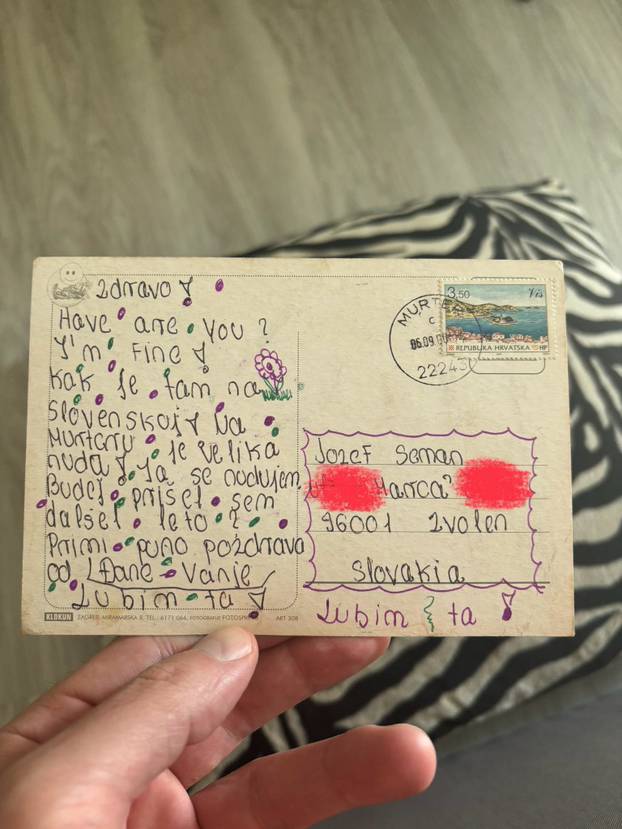 Zdravo!
Have are you?
I'm Fine!
Kak je tam na
Slovenskoj! Na
Murteru je velika
nuda! Ja se nadujem
Budeš prišel sem
dalšel leto?
Primi puno pozdrava
od Đane - Vanje
Ľubim ťa!
KLOKUN ZAGREB, MIRAMARSKA 5, TEL.: 6171 064, FOTOGRAFIJE FOTOSPEKTAR ART 308
MURTER
c
06.09
22243
3,50 Vis
REPUBLIKA HRVATSKA HP
Jozef Seman
Marca
96001 Zvolen
Slovakia
Ľubim ťa!